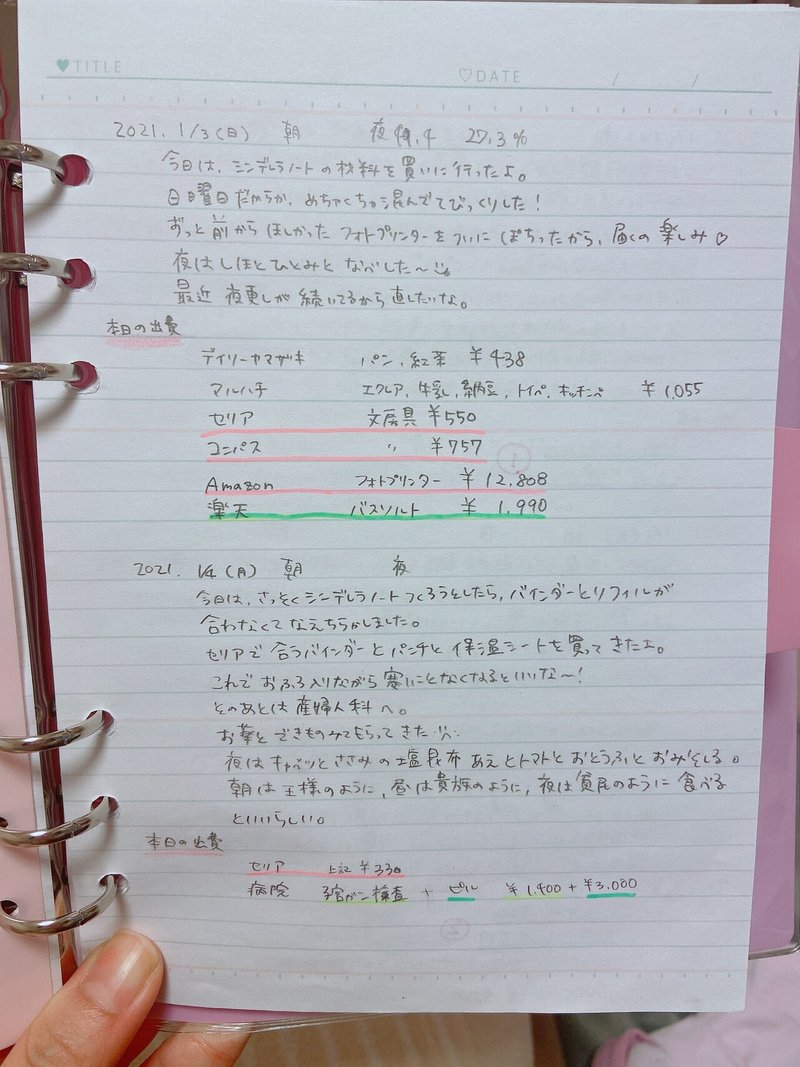 ♥TITLE
♡DATE / /
2021. 1/3(日) 朝 夜 .4 27.3%
今日は、シンデレラノートの材料を買いに行ったよ。
日曜日だからか、めちゃくちゃ混んでてびっくりした!
ずっと前からほしかったフォトプリンターをついにぽちったから、届くの楽しみ♡
夜はしほとひとみとなべした〜
最近夜更しが続いてるから直したいな。
本日の出費
デイリーヤマザキ パン、紅茶 ¥438
マルハチ エクレア、牛乳、納豆、トイペ、キッチンペ ¥1,055
セリア 文房具 ¥550
コンパス 〃 ¥757
①
Amazon フォトプリンター ¥12,808
楽天 バスソルト ¥1,990
2021. 1/4(月) 朝 夜
今日は、さっそくシンデレラノートつくろうとしたら、バインダーとリフィルが
合わなくてなえちらかしました。
セリアで合うバインダーとパンチと保温シートを買ってきたよ。
これでおふろ入りながら寒いことなくなるといいな〜!
そのあとは産婦人科へ。
お薬とできものみてもらってきた
夜はキャベツとささみの塩昆布あえとトマトとおとうふとおみそしる。
朝は王様のように、昼は貴族のように、夜は貧民のように食べる
といいらしい。
本日の出費
セリア 上記 ¥330
病院 子宮がん検査 + ピル ¥1,400+¥3,000
②